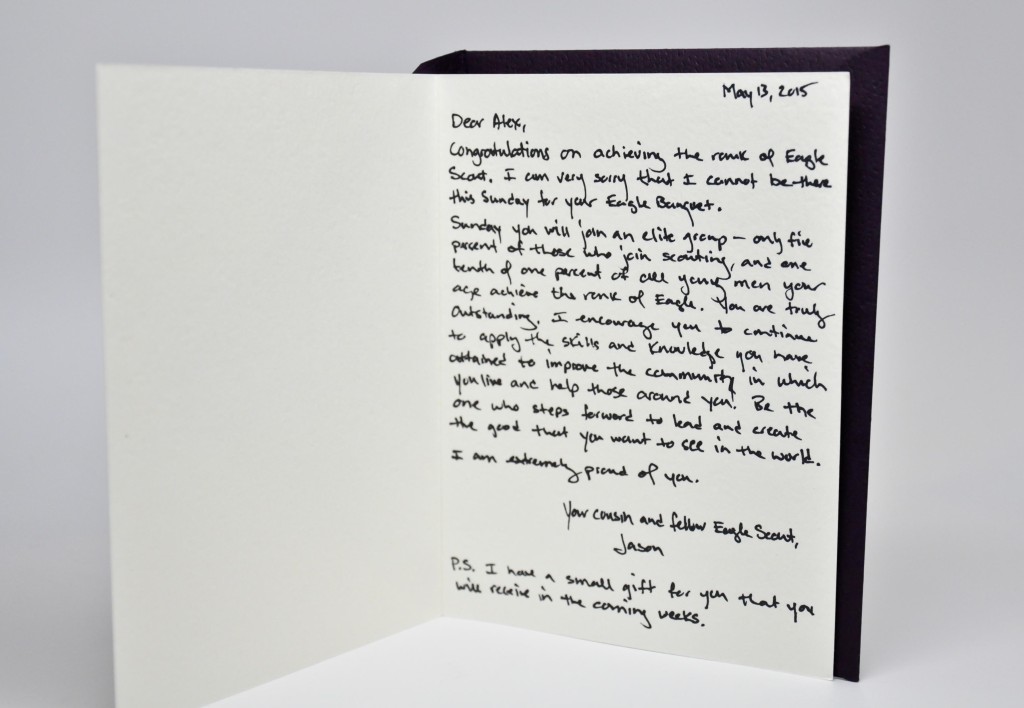 May 13, 2015
Dear Alex,
Congratulations on achieving the rank of Eagle
Scout. I am very sorry that I cannot be there
this Sunday for your Eagle Banquet.
Sunday you will join an elite group – only five
percent of those who join scouting, and one
tenth of one percent of all young men your
age achieve the rank of Eagle. You are truly
Outstanding. I encourage you to continue
to apply the skills and knowledge you have
attained to improve the community in which
you live and help those around you. Be the
one who steps forward to lead and create
the good that you want to see in the world.
I am extremely proud of you.
Your cousin and fellow Eagle Scout,
Jason
P.S. I have a small gift for you that you
will receive in the coming weeks.